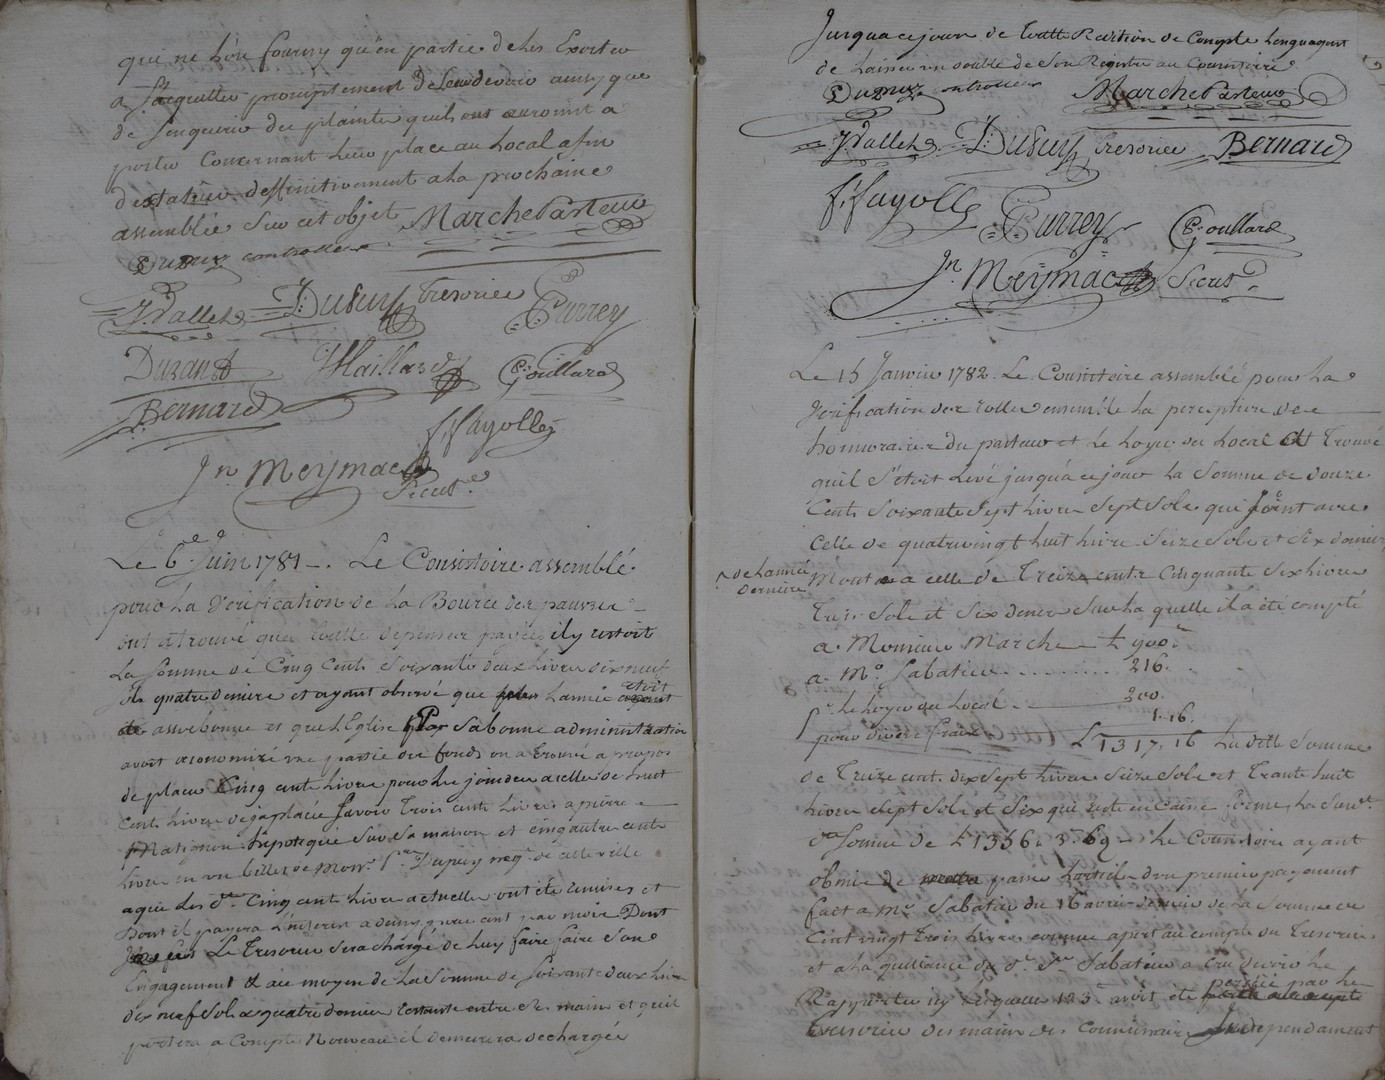 qui ne lon fourny quén partie de les Exorter
a Sacquitter promptement de leur devoir aussy que
de Senquerir des plaintes quils ont auront a
porter Concernant leur place au Local afin
destatuer deffinitivement a la prochaine
assemblée Sur cet objet Marche Pasteur
Dupuy controlleur
J. Vallet J: Dupuy Tresorier C Currey
Durand J Maillard C. Goullard
Bernard
f. fayolle
Jn Meymac
Secret.re
Le 6.e Juin 1781 -. Le Consistoire assemblé
pour la Verification de la Bource des pauvres
ont a trouvé que toutte depenses payées il y restoit
La Somme de Cinq Cent Soixante deux Livres dix neuf
sols quatre deniers et ayant observé que l'année etoit
asses bonne et que l'Eglise par Sa bonne administration
avoit oconomizé une partie des fonds on a trouvé a propos
de placer Cinq cents livres pour les joindre a celle de huit
Cents livres deja placée Savoir trois cents livres a pierre
Matignon hipotequé Sur Sa maison et cinq autre cents
livres en un billet de Monsr. Dupuy neg.t de cette ville
a qui les d.tes Cinq cent livres actuelle ont été remises et
Dont il payera L'interet a demy pour cent par mois Dont
Le Tresorier Sera chargé de luy faire faire Son
Engagement & au moyen de la Somme de Soixante deux livres
dix neuf Sols & quatre deniers restante entre Ses mains et quil
portera a Compte Nouveau il demeurera dechargé
Jusqua ce jour de toutte Reddition de Compte Sengageant
de laisser un double de Son Registre au Consistoire
Dupuy controlleur Marche Pasteur
J. Vallet J: Dupuy tresorier Bernard
f. fayolle C Currey C. Goullard
Jn Meymac Secret.
Le 15 Janvier 1782. Le Consistoire assemblé pour la
Verification des rolles ensemble la perception des
honnoraires du pasteur et le Loyer du Local at Trouvé
quil S'etoit Levé jusquà ce jour la Somme de douze
Cents Soixante Sept livres Sept Sols qui joint avec
Celle de quatrevingt huit livres Seize Sols et Six deniers
de L'année
derniere
Monte a celle de Treize cents Cinquante Six livres
Trois Sols et Six deniers Sur la quelle il a été compté
a Monsieur Marche ₶ 900.
a Mr. Sabatier . . . . . . . . 216.
pr. le Loyer du Local 200.
pour divers fraix 1. 16.
₶ 1317. 16 La ditte Somme
de Treize cent dix Sept livres Seize Sols et Trante huit
livres Sept Sols et Six qui reste en Caisse forme la Susd.te
Somme de ₶ 1356. 3. 6 Le Consistoire ayant
obmis de passer l'article d'un premier payement
fait a Mr. Sabatier du 16 avril dernier de la Somme de
Cent vingt Trois livres comme apert au compte du Tresorier
et a la quittance du d. Sr. Sabatier a cru devoir le
Rapporter icy lesqueles 123 avoit été portée par le
Tresorier des mains des Commissaires Independament